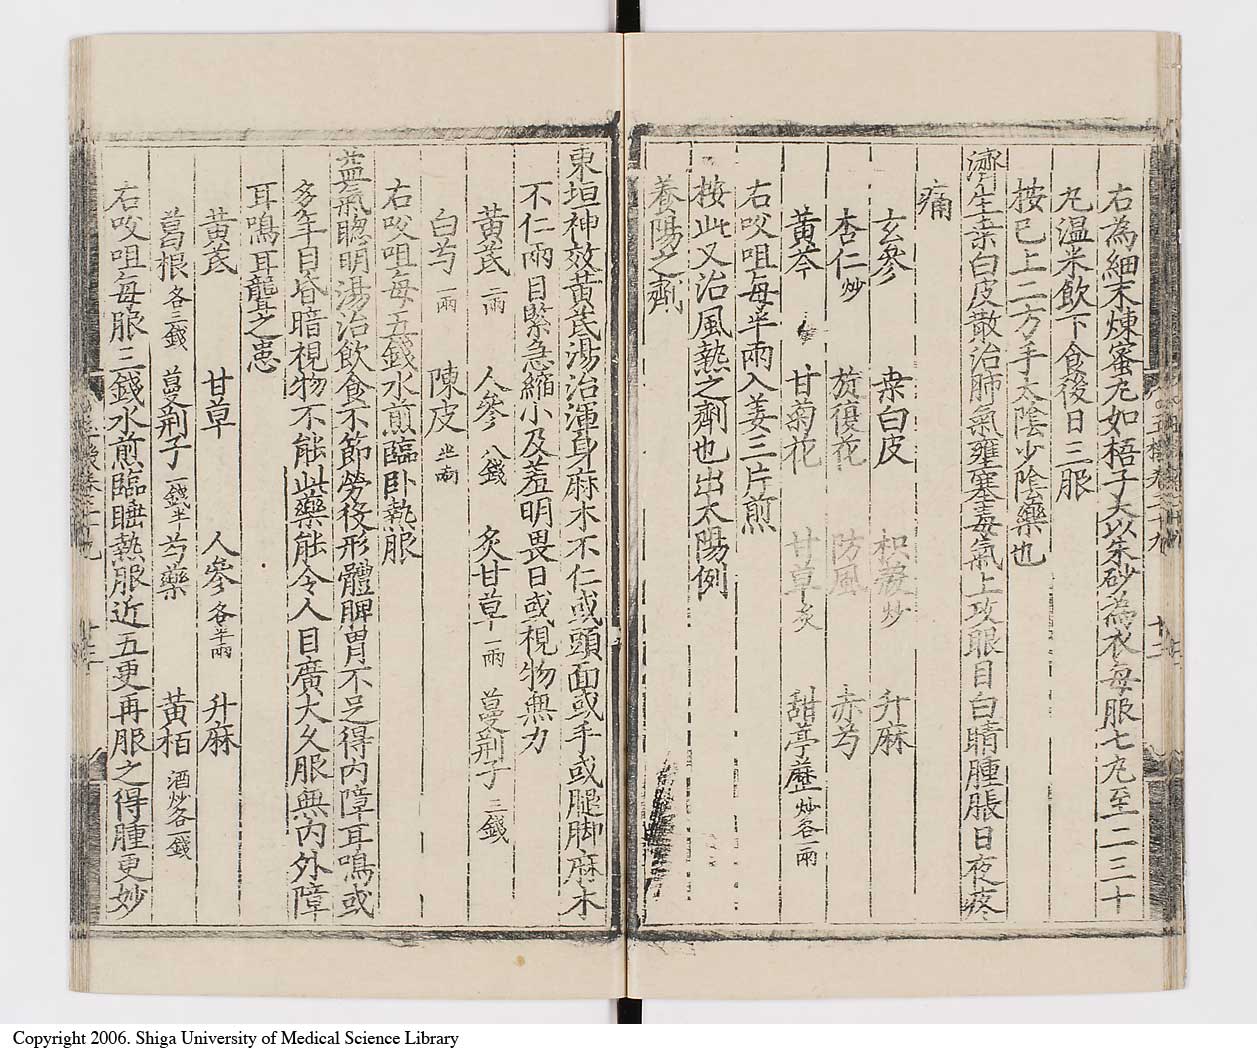 右為細末煉蜜丸如梧子大以朱砂為衣每服七丸至二三十
丸温米飲下食後日三服
按已上二方手太陰少陰藥也
濟生桒白皮散治肺氣壅塞毒氣上攻眼目白睛腫脹日夜疼
痛
玄參 桒白皮 枳殼炒 升麻
杏仁炒 旋復花 防風 赤芍
黃芩 甘菊花 甘草炙 甜葶藶炒各一兩
右㕮咀每半兩入姜三片煎
按此又治風熱之劑也出太陽例
養陽之劑
東垣神效黃芪湯治渾身麻木不仁或頭面或手或腿脚麻木
不仁兩目緊急縮小及羞明畏日或視物無力
黃芪二兩 人參八錢 炙甘草一兩 蔓荊子二錢
白芍一兩 陳皮半兩
右㕮咀每五錢水煎臨卧熱服
益氣聰明湯治飲食不節勞役形體脾胃不足得内障耳鳴或
多年目昏暗視物不能此藥能令人目廣大久服無内外障
耳鳴耳聾之患
黃芪 甘草 人參各半兩 升麻
葛根各三錢 蔓荊子一錢半 芍藥 黃栢酒炒各一錢
右㕮咀每服三錢水煎臨睡熱服近五更再服之得腫更妙
Copyright 2006. Shiga University of Medical Science Library